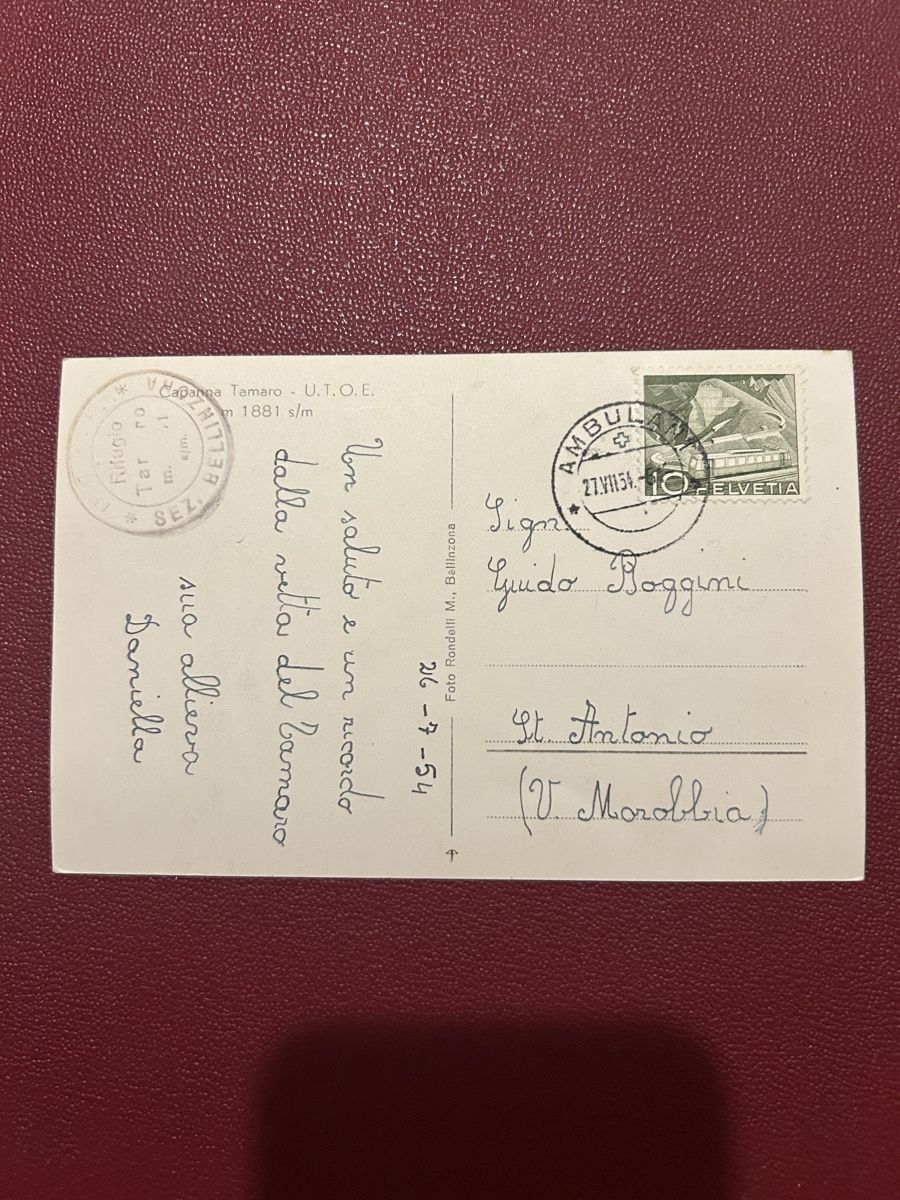 Capanna Tamaro - U.T.O.E.
m 1881 s/m
SEZ. BELLINZONA
Rifugio
Tam ro
m. s/m.
26 - 7 - 54
Un saluto e un ricordo
dalla vetta del Tamaro
sua allieva
Daniella
Foto Rondelli M., Bellinzona
AMBULANT
27.VII.54.
10 HELVETIA
Sign.
Guido Boggini
St. Antonio
(V. Morobbia)